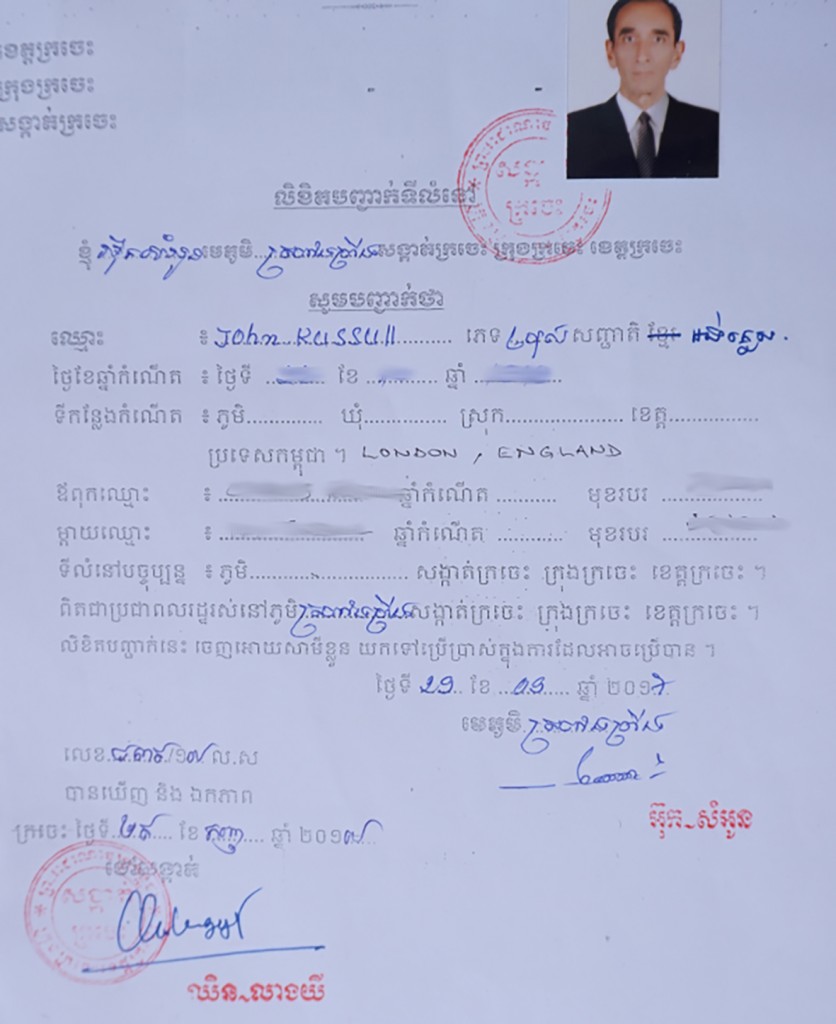 ខេត្តក្រចេះ
ក្រុងក្រចេះ
សង្កាត់ក្រចេះ
សង្កាត់
ក្រចេះ
លិខិតបញ្ជាក់ទីលំនៅ
ខ្ញុំ មេភូមិ... សង្កាត់ក្រចេះ ក្រុងក្រចេះ ខេត្តក្រចេះ
សូមបញ្ជាក់ថា
ឈ្មោះ ៖ John Russull ភេទ ប្រុស សញ្ជាតិ ខ្មែរ អង់គ្លេស.
ថ្ងៃខែឆ្នាំកំណើត ៖ ថ្ងៃទី ខែ ឆ្នាំ
ទីកន្លែងកំណើត ៖ ភូមិ............... ឃុំ............... ស្រុក..................... ខេត្ត................
ប្រទេសកម្ពុជា ។ LONDON , ENGLAND
ឪពុកឈ្មោះ ៖ ឆ្នាំកំណើត ........... មុខរបរ ..................
ម្តាយឈ្មោះ ៖ ឆ្នាំកំណើត ............ មុខរបរ ..................
ទីលំនៅបច្ចុប្បន្ន ៖ ភូមិ............................. សង្កាត់ក្រចេះ ក្រុងក្រចេះ ខេត្តក្រចេះ ។
ពិតជាប្រជាពលរដ្ឋរស់នៅភូមិ សង្កាត់ក្រចេះ ក្រុងក្រចេះ ខេត្តក្រចេះ ។
លិខិតបញ្ជាក់នេះ ចេញអោយសាមីខ្លួន យកទៅប្រើប្រាស់ក្នុងការដែលអាចប្រើបាន ។
ថ្ងៃទី 29.. ខែ ...09..... ឆ្នាំ ២០១7
មេភូមិ
លេខ ល.ស
បានឃើញ និង ឯកភាព
ក្រចេះ ថ្ងៃទី ២៩ ខែ កញ្ញា ឆ្នាំ ២០១៧
ចៅសង្កាត់
អ៊ុក~សំអូន
សង្កាត់
ក្រចេះ
ឃិន~លាងយី